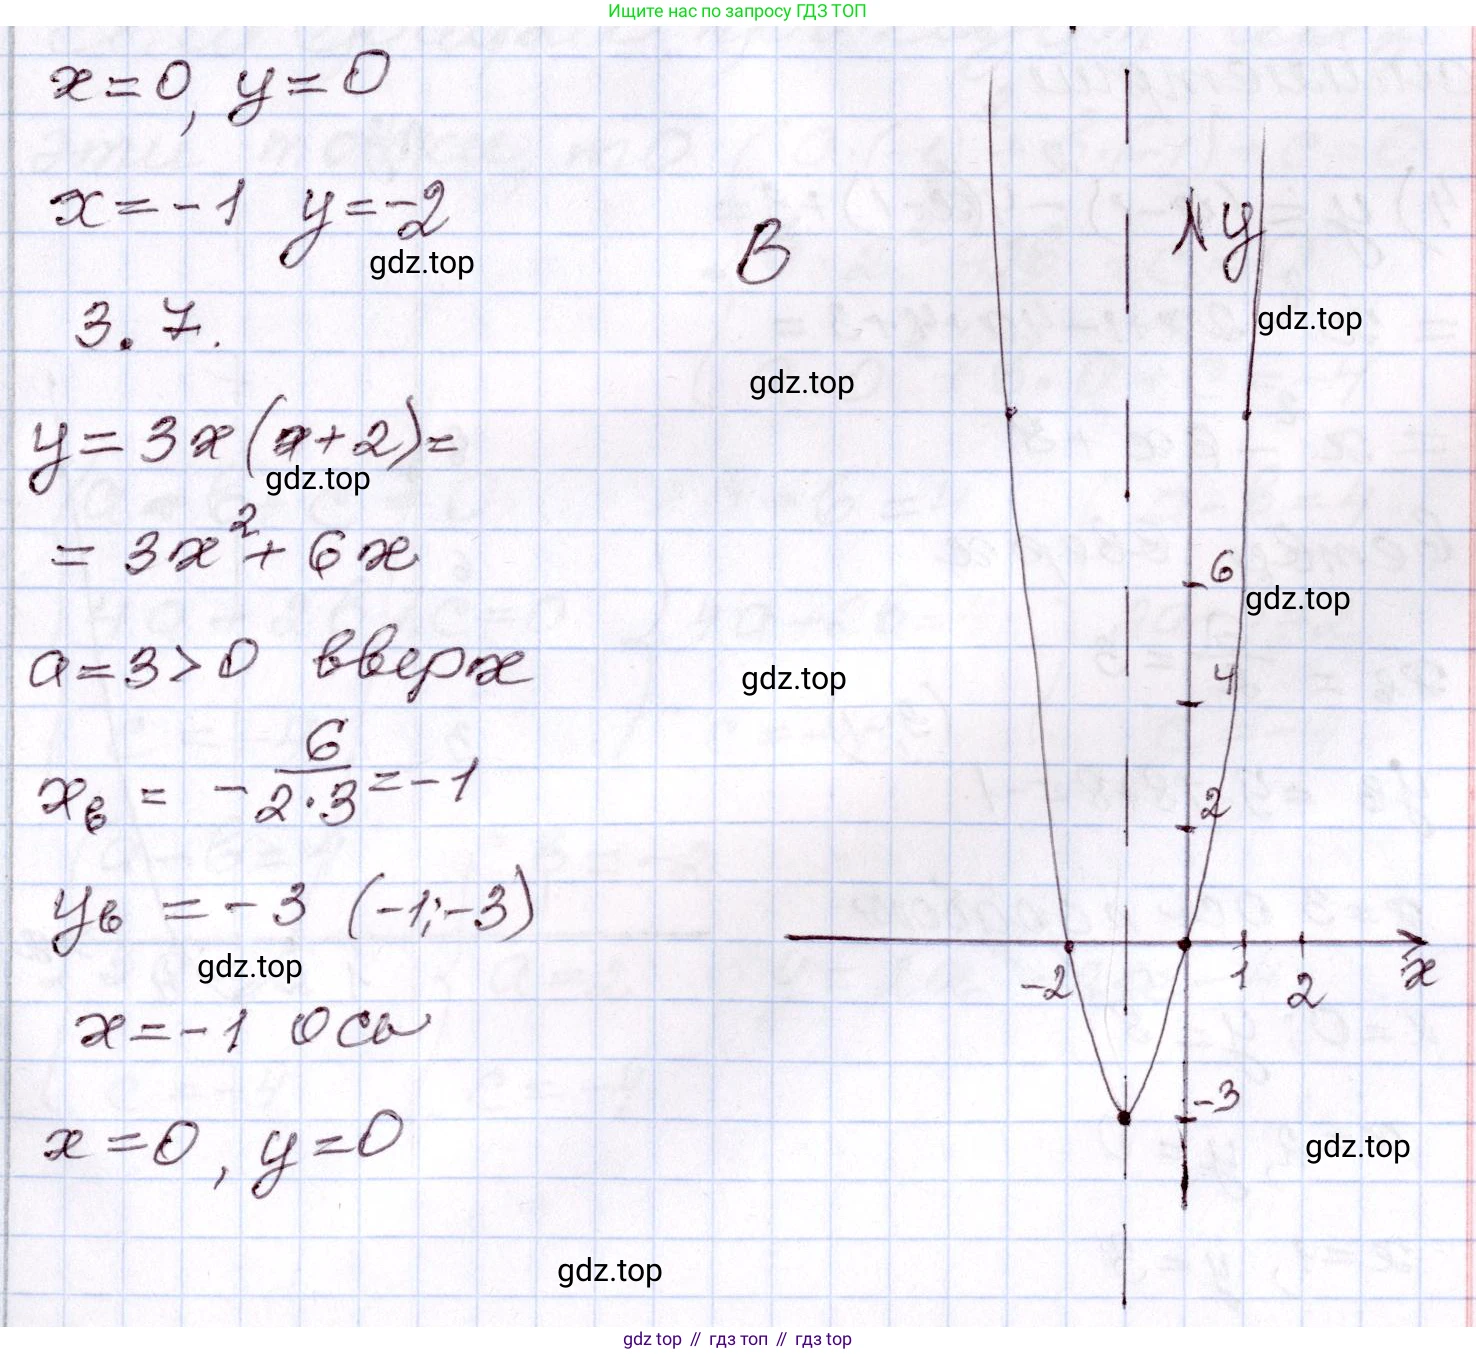 Ищите нас по запросу ГДЗ ТОП
x=0, y=0
x=-1 y=-2
gdz.top
3.7.
y=3x(x+2)=
gdz.top
=3x²+6x
a=3>0 вверх
x_в = -6/(2·3)=-1
y_в =-3 (-1;-3)
gdz.top
x=-1 ось
x=0, y=0
gdz.top
В
gdz.top
gdz.top
y
gdz.top
6
gdz.top
4
2
-2
1
2
x
-3
gdz.top
gdz top // гдз топ // гдз top